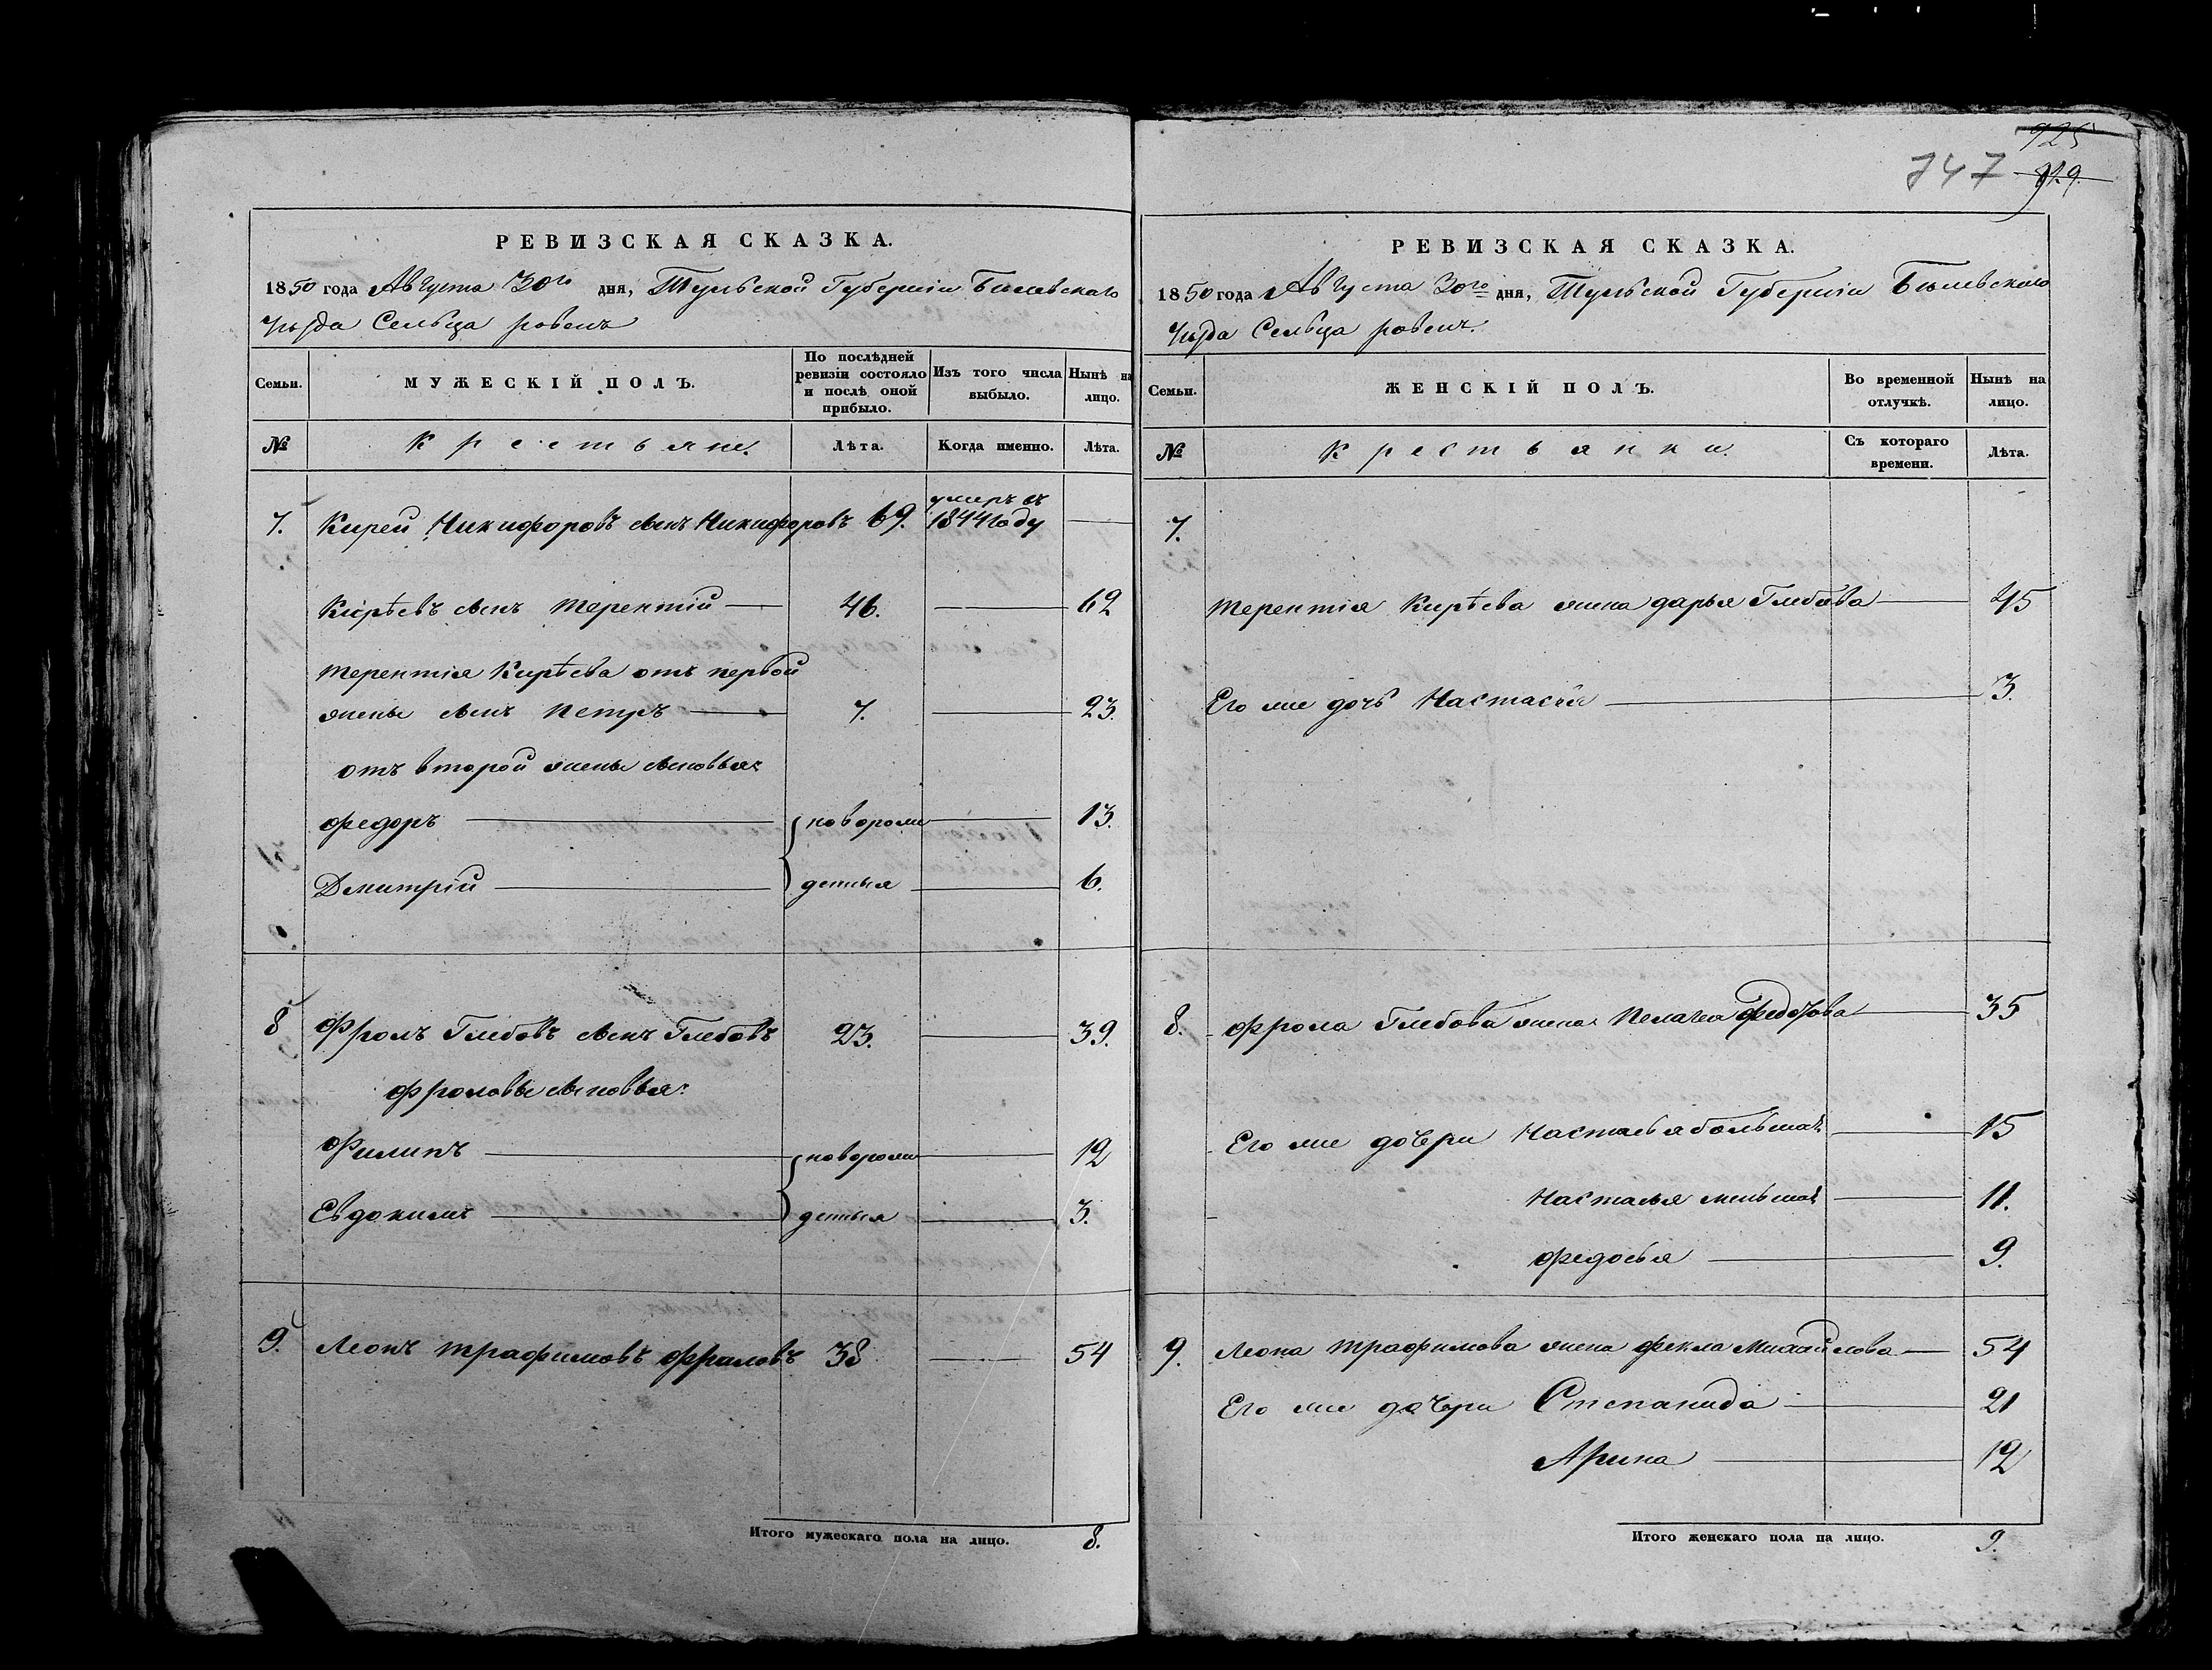 925
747 919.
РЕВИЗСКАЯ СКАЗКА.
1850 года Августа 30го дня, Тульской Губерніи Бѣлевскаго
Уѣзда Сельца ровенъ
Семьи. МУЖЕСКІЙ ПОЛЪ. По послѣдней ревизіи состояло и послѣ оной прибыло. Изъ того числа выбыло. Нынѣ на лицо.
№ Крестьяне. Лѣта. Когда именно. Лѣта.
7. Кирей Никифоровъ сынъ Никифоровъ 69. умеръ въ 1844 году
Кирѣевъ сынъ Терентій 46. 62
Терентія Кирѣева отъ первой
жены сынъ Петръ 7. 23.
отъ второй жены сыновья:
Федоръ новорож 13.
Дмитрій денныя 6.
8 Фролъ Глебовъ сынъ Глебовъ 23. 39.
Фроловы сыновья:
Филипъ новорож 12
Евдокимъ денныя 3.
9. Леонъ Трафимовъ Фраловъ 38 54
Итого мужескаго пола на лицо. 8.
РЕВИЗСКАЯ СКАЗКА.
1850 года Августа 30го дня, Тульской Губерніи Бѣлевскаго
Уѣзда Сельца ровенъ.
Семьи. ЖЕНСКІЙ ПОЛЪ. Во временной отлучкѣ. Нынѣ на лицо.
№ Крестьянки. Съ котораго времени. Лѣта.
7.
Терентія Кирѣева жена дарья Глебова 45
Его же дочь Настасія 3.
8. Фрола Глебова жена Пелагея Федотова 35
Его же дочери Настасья большая 15
Настасья меньшая 11.
Федосья 9.
9. Леона Трафимова жена Фекла Михайлова 54
Его же дочери Степанида 21
Арина 12
Итого женскаго пола на лицо. 9.